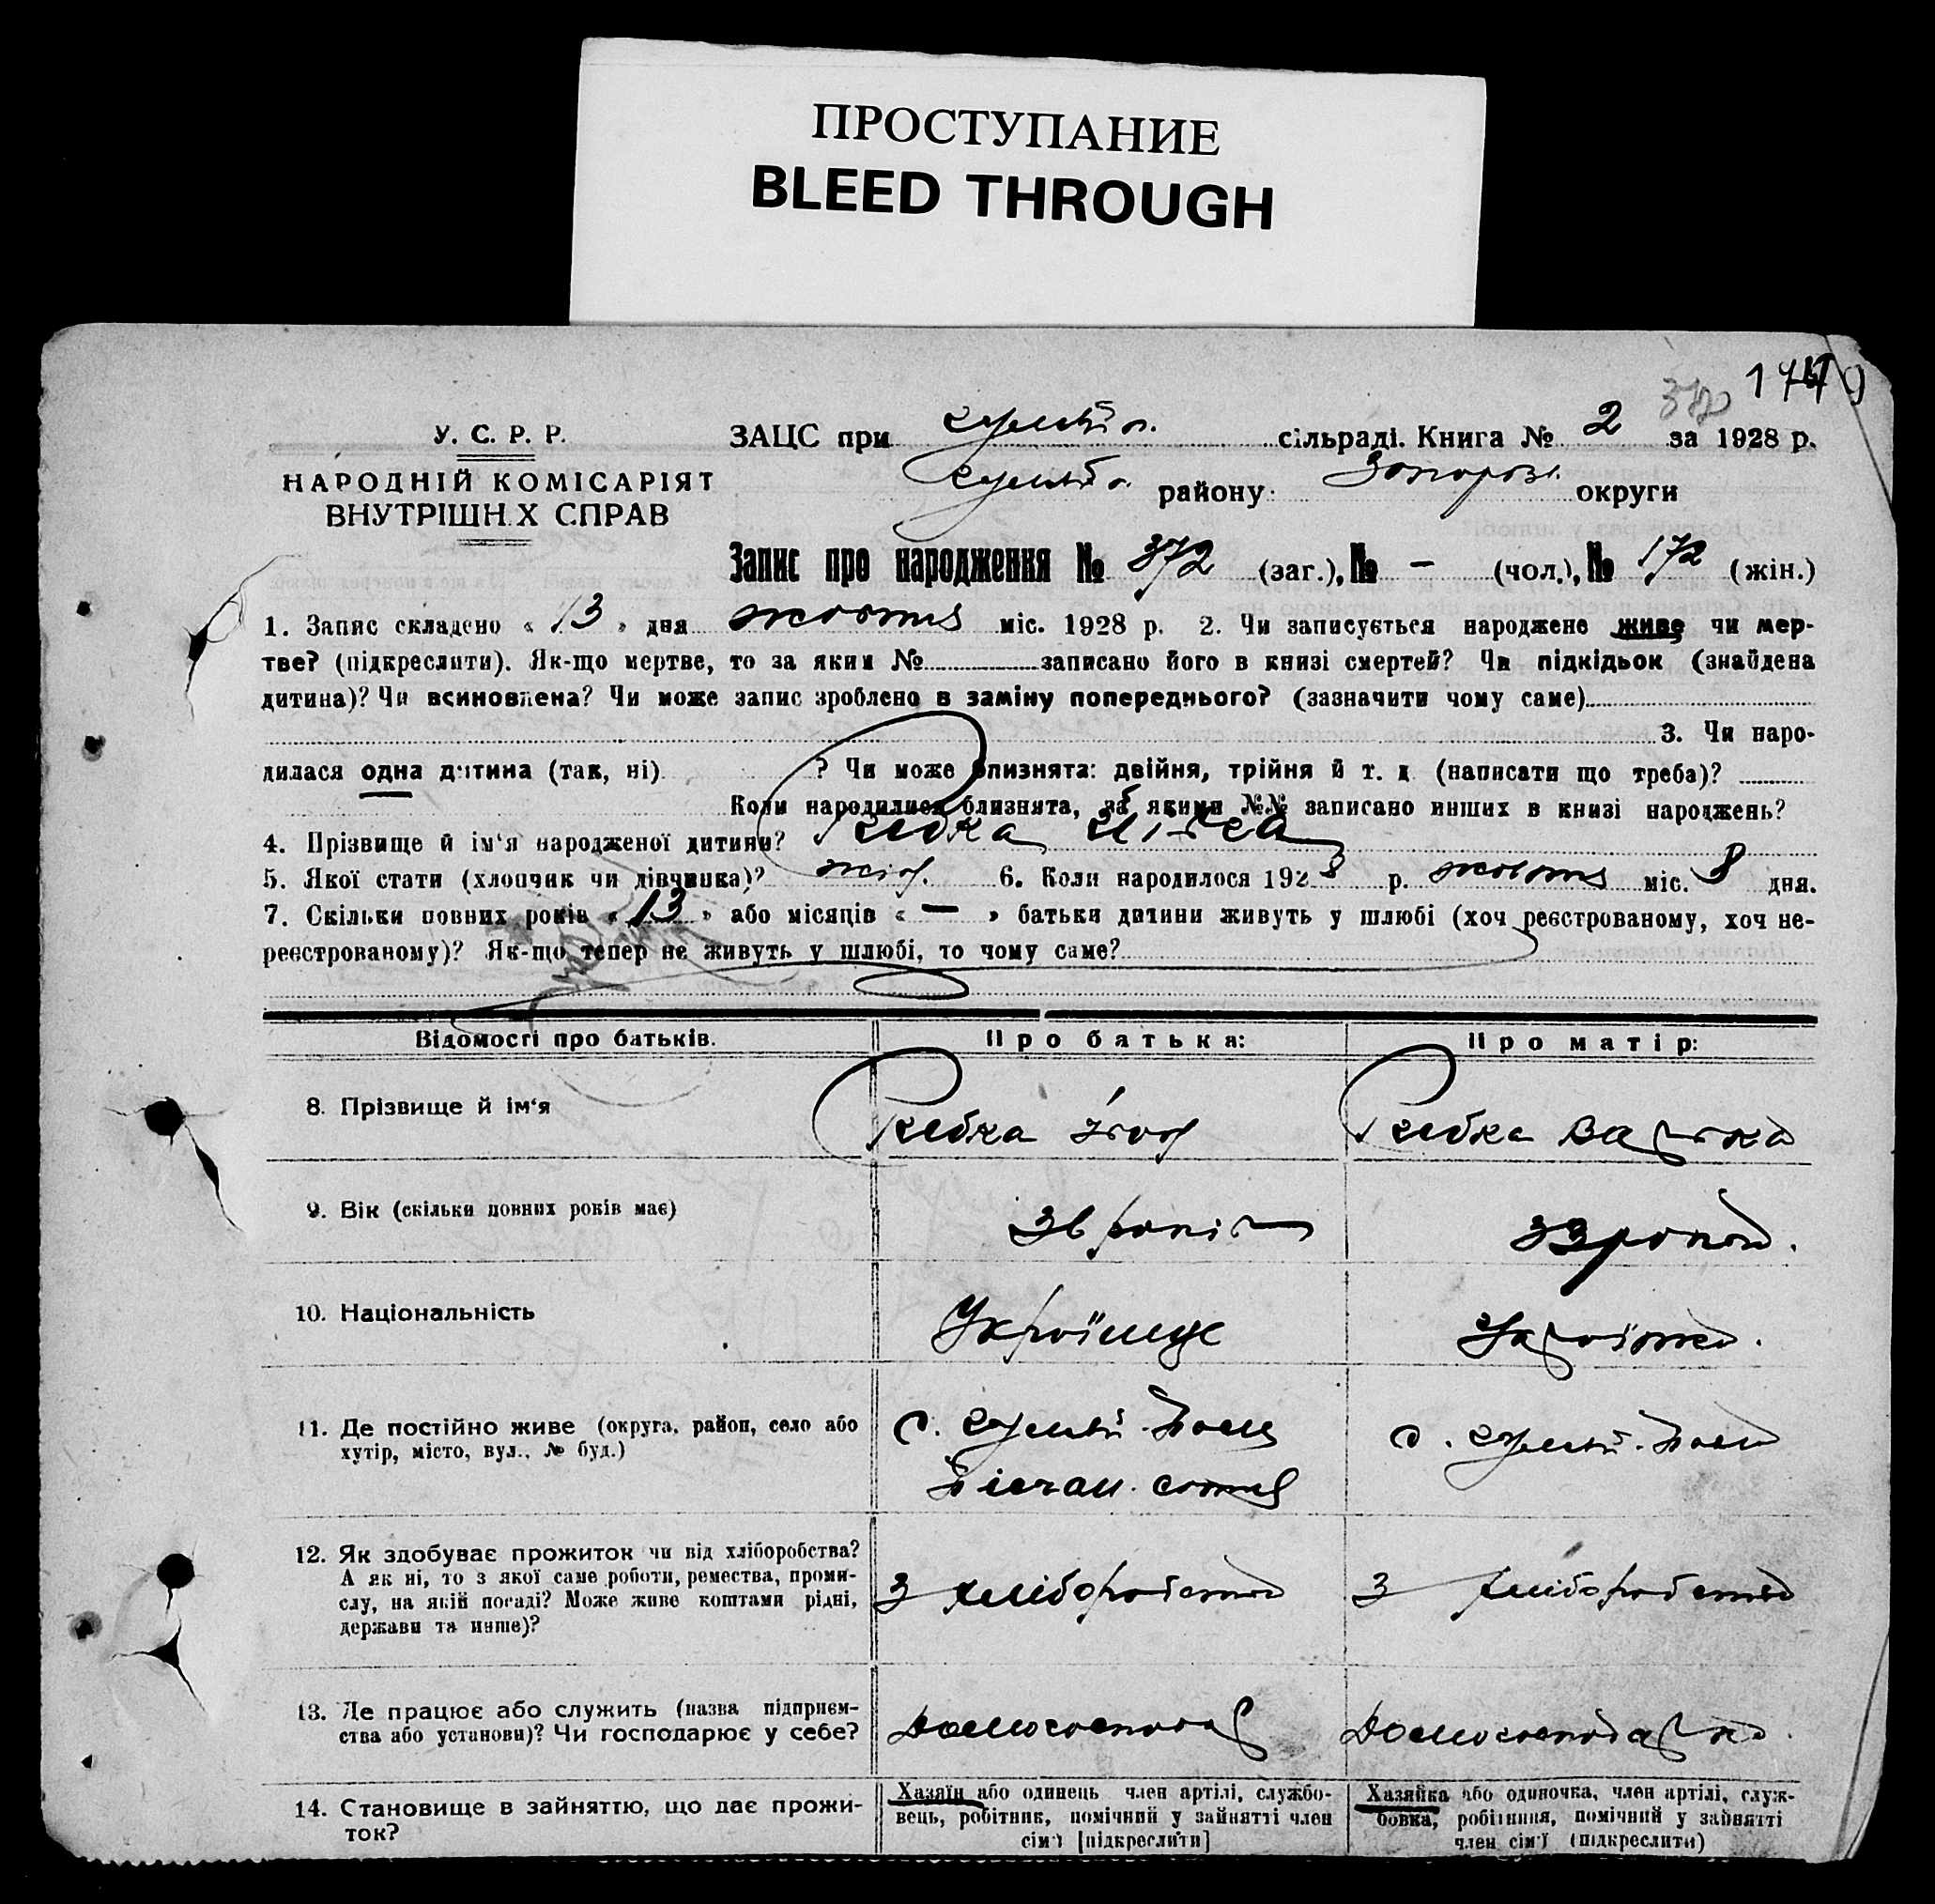 ПРОСТУПАНИЕ
BLEED THROUGH
У. С. Р. Р.
НАРОДНІЙ КОМІСАРІЯТ
ВНУТРІШН.Х СПРАВ
ЗАЦС при сільраді. Книга № 2 за 1928 р.
району Запорозь. округи
Запис про народження № 372 (заг.), № – (чол.), № 172 (жін.)
1. Запис складено « 13 » дня жовтня міс. 1928 р. 2. Чи записується народжене живе чи мер-
тве? (підкреслити). Як-що мертве, то за яким № записано його в книзі смертей? Чи підкідьок (знайдена
дитина)? Чи всиновлена? Чи може запис зроблено в заміну попереднього? (зазначити чому саме)
3. Чи наро-
дилася одна дитина (так, ні) ? Чи може близнята: двійня, трійня й т. д. (написати що треба)?
Коли народилися близнята, за якими №№ записано инших в книзі народжень?
4. Прізвище й ім‘я народженої дитини?
5. Якої стати (хлопчик чи дівчинка)? жін. 6. Коли народилося 1928 р. жовтня міс. 8 дня.
7. Скільки повних років « 13 » або місяців « — » батьки дитини живуть у шлюбі (хоч реєстрованому, хоч не-
реєстрованому)? Як-що тепер не живуть у шлюбі, то чому саме?
Відомості про батьків.
Про батька:
Про матір:
8. Прізвище й ім‘я
9. Вік (скільки повних років має)
36 років
33 роки.
10. Національність
Українець
Українка.
11. Де постійно живе (округа, район, село або
хутір, місто, вул., № буд.)
12. Як здобуває прожиток чи від хліборобства?
А як ні, то з якої саме роботи, ремества, проми-
слу, на якій посаді? Може живе коштами рідні,
держави та инше)?
З хліборобства
З хліборобства
13. Де працює або служить (назва підприєм-
ства або установи)? Чи господарює у себе?
Домогосподар
Домогосподарка.
14. Становище в зайняттю, що дає прожи-
ток?
Хазяїн або одинець член артілі, службо-
вець, робітник, помічний у зайнятті член
сім‘ї [підкреслити]
Хазяйка або одиночка, член артілі, служ-
бовка, робітниця, помічний у зайнятті
член сім‘ї (підкреслити)